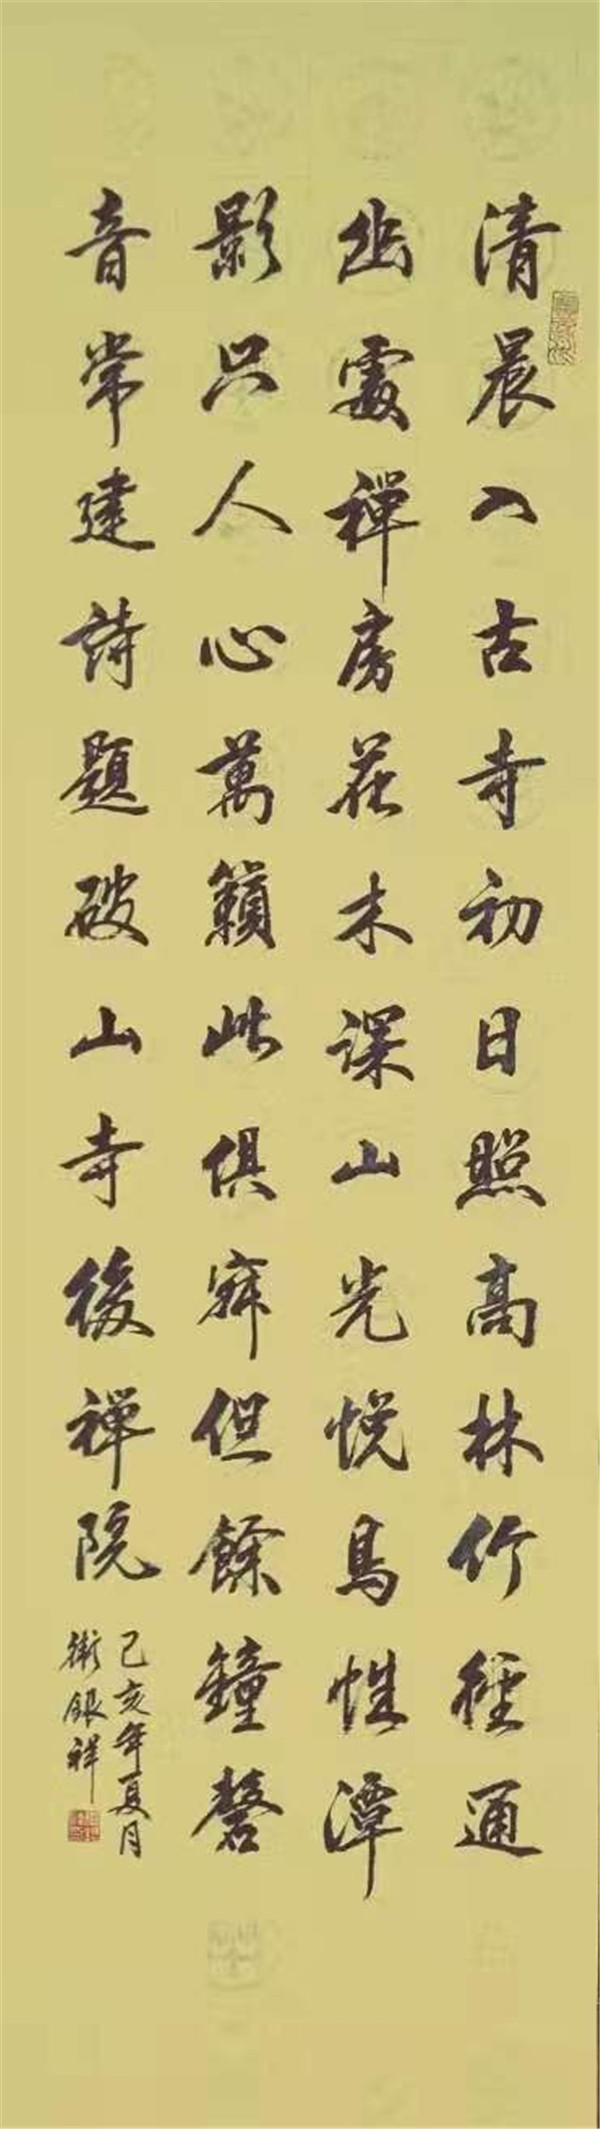 清晨入古寺初日照高林竹徑通
幽處禪房花木深山光悅鳥性潭
影只人心萬籟此俱寂但餘鐘磬
音常建詩題破山寺後禪院
己亥年夏月
衛銀祥